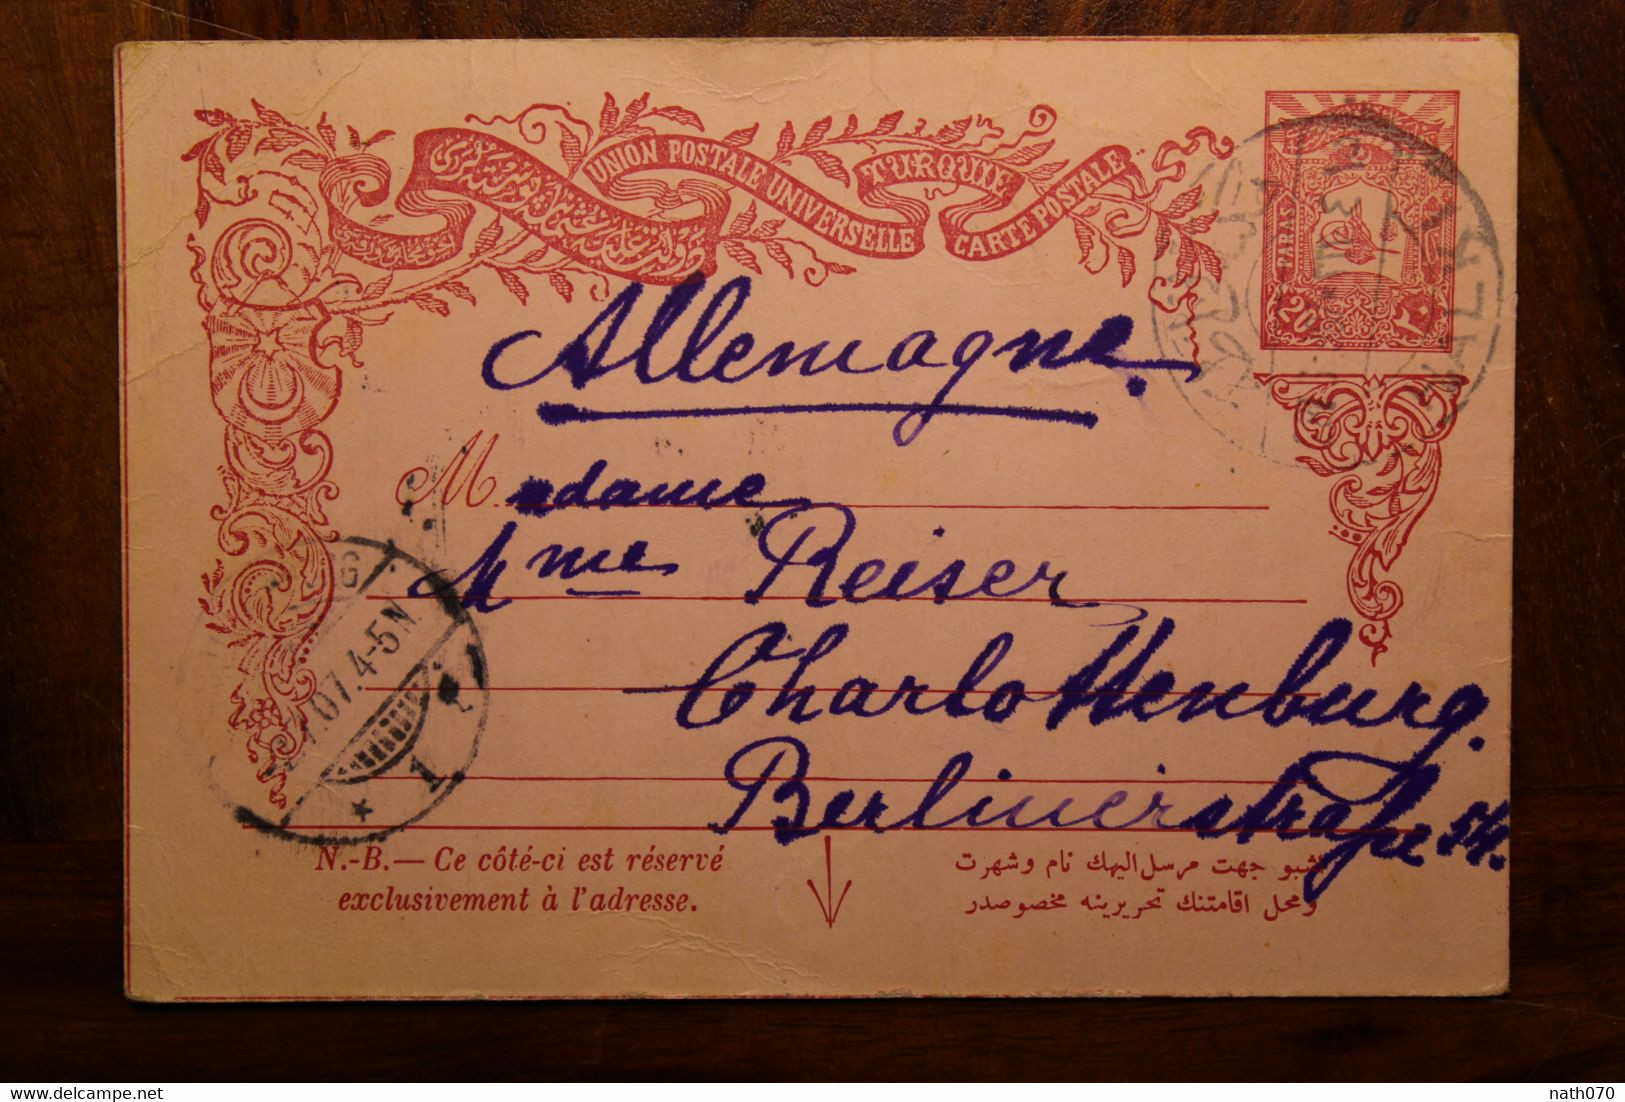 UNION POSTALE UNIVERSELLE
TURQUIE
CARTE POSTALE
PARAS
20 ٢٠
Allemagne.
Madame
Mme Reiser
Charlottenburg.
Berlinerstraße 54.
07.4-5N.
* 1
N.-B.— Ce côté-ci est réservé
exclusivement à l'adresse.
اشبو جهت مرسل اليهك نام وشهرت
ومحل اقامتنك تحريرينه مخصوصدر
delcampe.net
nath070